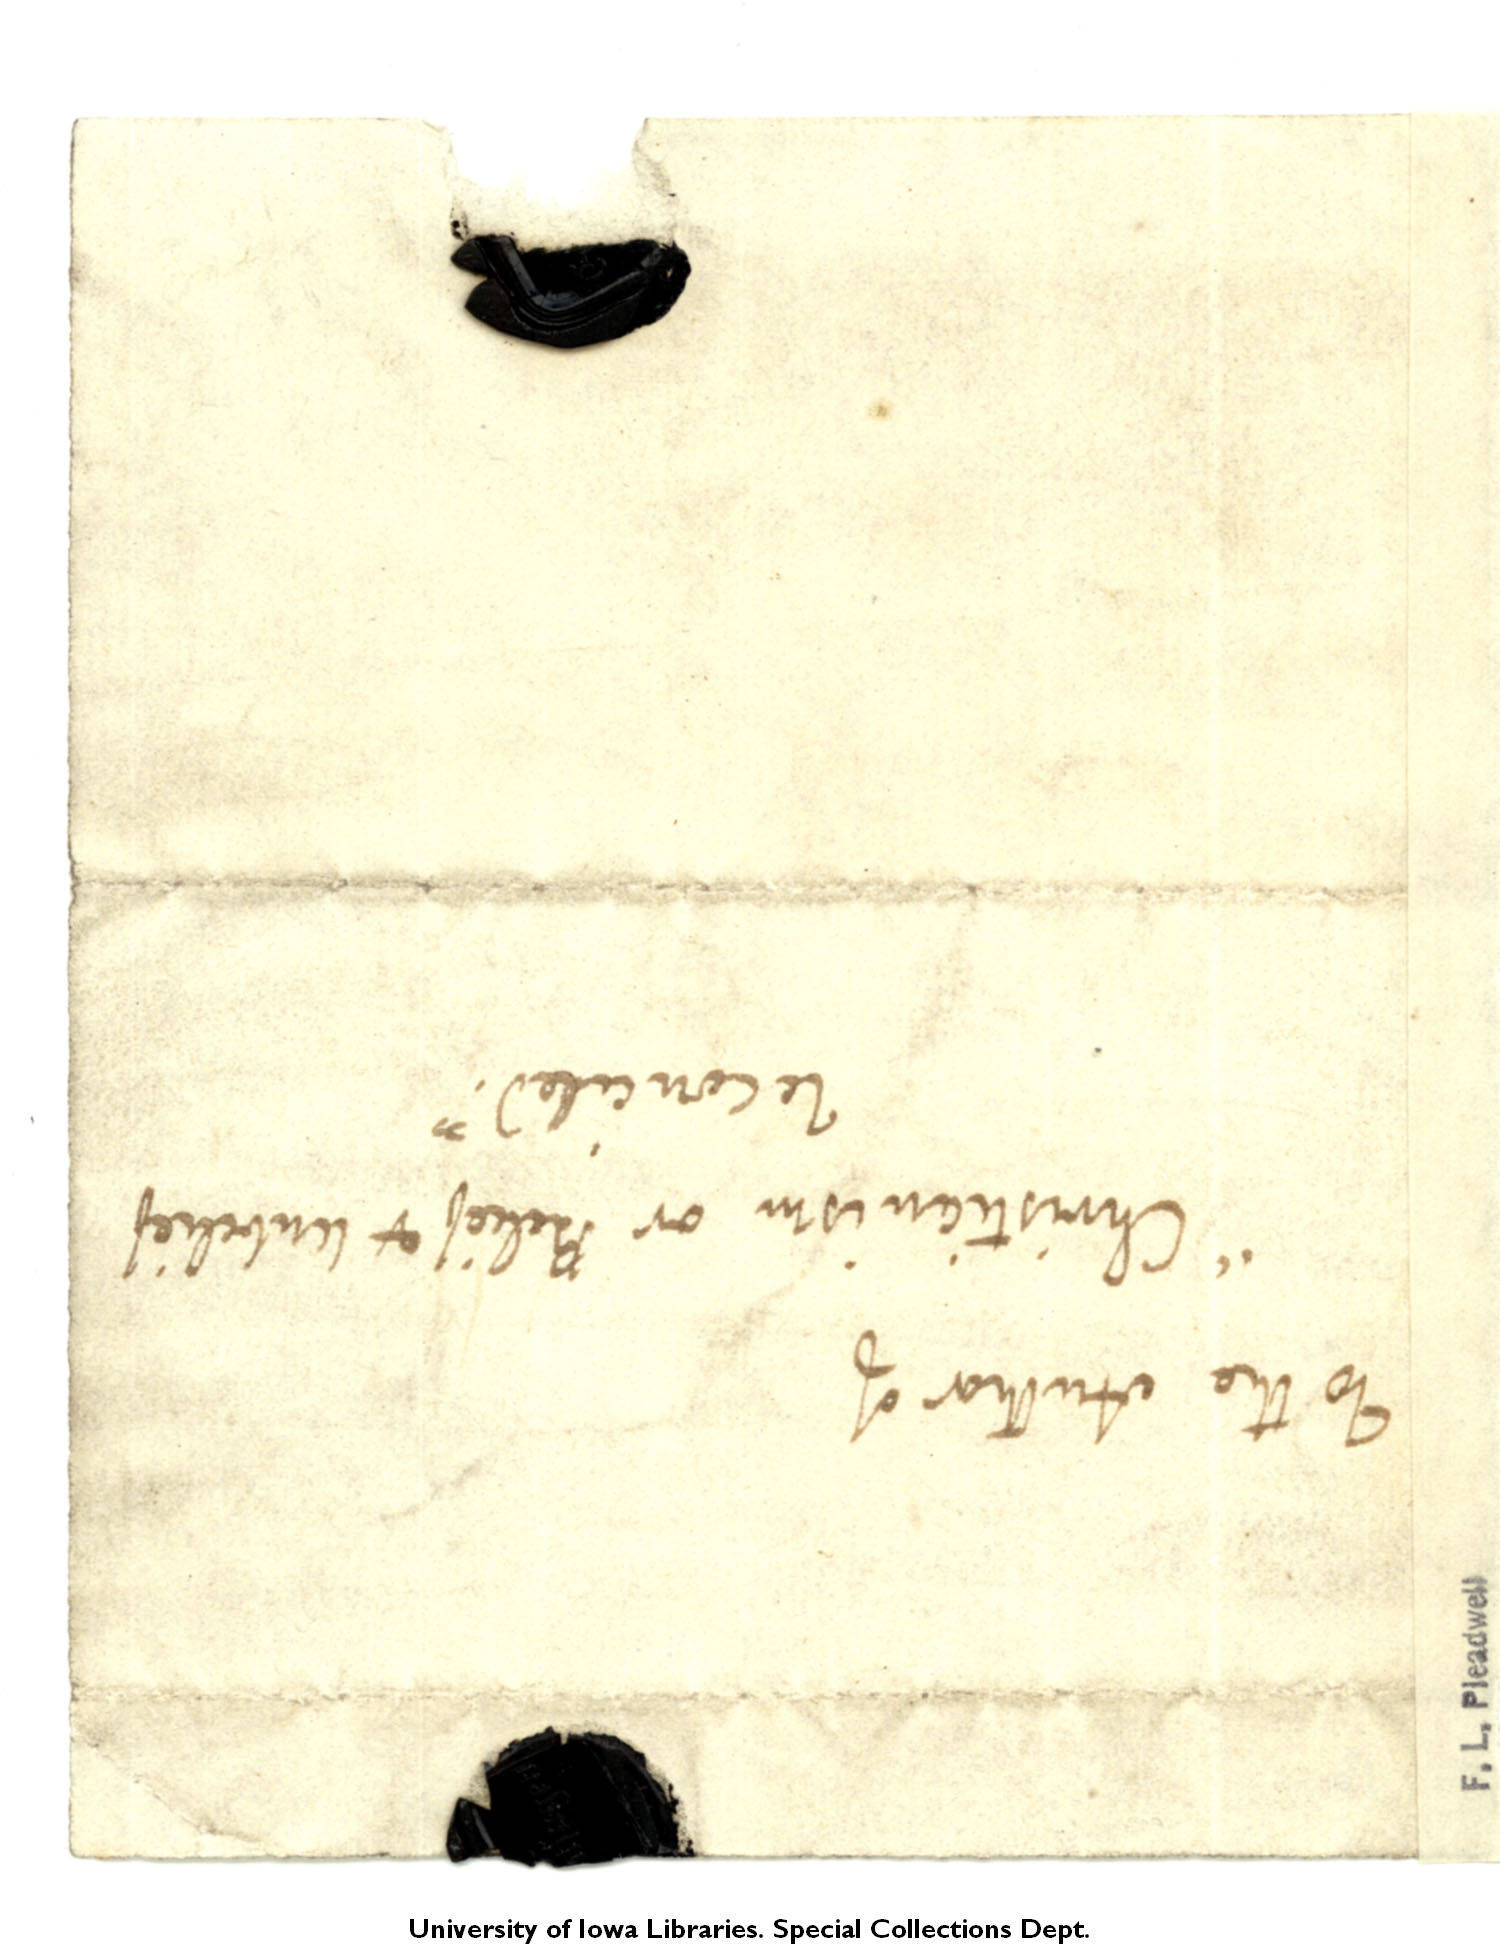 To the Author of
"Christianism or Belief & Unbelief
reconciled."
F. L. Pleadwell
University of Iowa Libraries. Special Collections Dept.